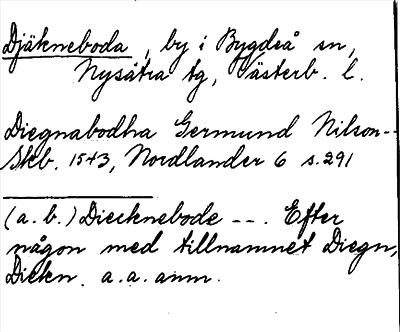 Djäkneboda, by i Bygdeå sn,
Nysätra tg, Västerb. l.
Diegnabodha Germund Nilson--
Skb. 1543, Nordlander 6 s.291
(a. b.) Diecknebode --. Efter
någon med tillnamnet Diegn,
Diekn. a.a. anm.